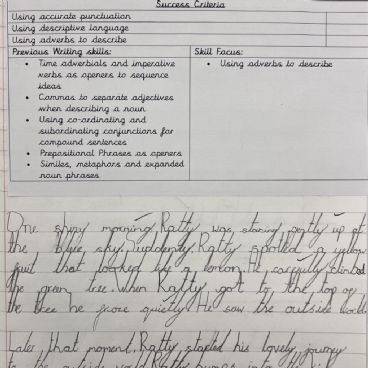 Success Criteria
Using accurate punctuation
Using descriptive language
Using adverbs to describe
Previous Writing skills:
Time adverbials and imperative
verbs as openers to sequence
ideas
Commas to separate adjectives
when describing a noun
Using co-ordinating and
subordinating conjunctions for
compound sentences
Prepositional Phrases as openers
Similes, metaphors and expanded
noun phrases
Skill Focus:
Using adverbs to describe
One shiny morning, Ratty was staring gently up at
the blue sky. Suddenly, Ratty spotted a yellow
fruit that looked like a lemon. He carefully climbed
the green tree. When Ratty got to the top of
the tree he froze quietly. He saw the outside world.
Later that moment, Ratty started his lovely journey
to the outside world. Ratty bumps into the